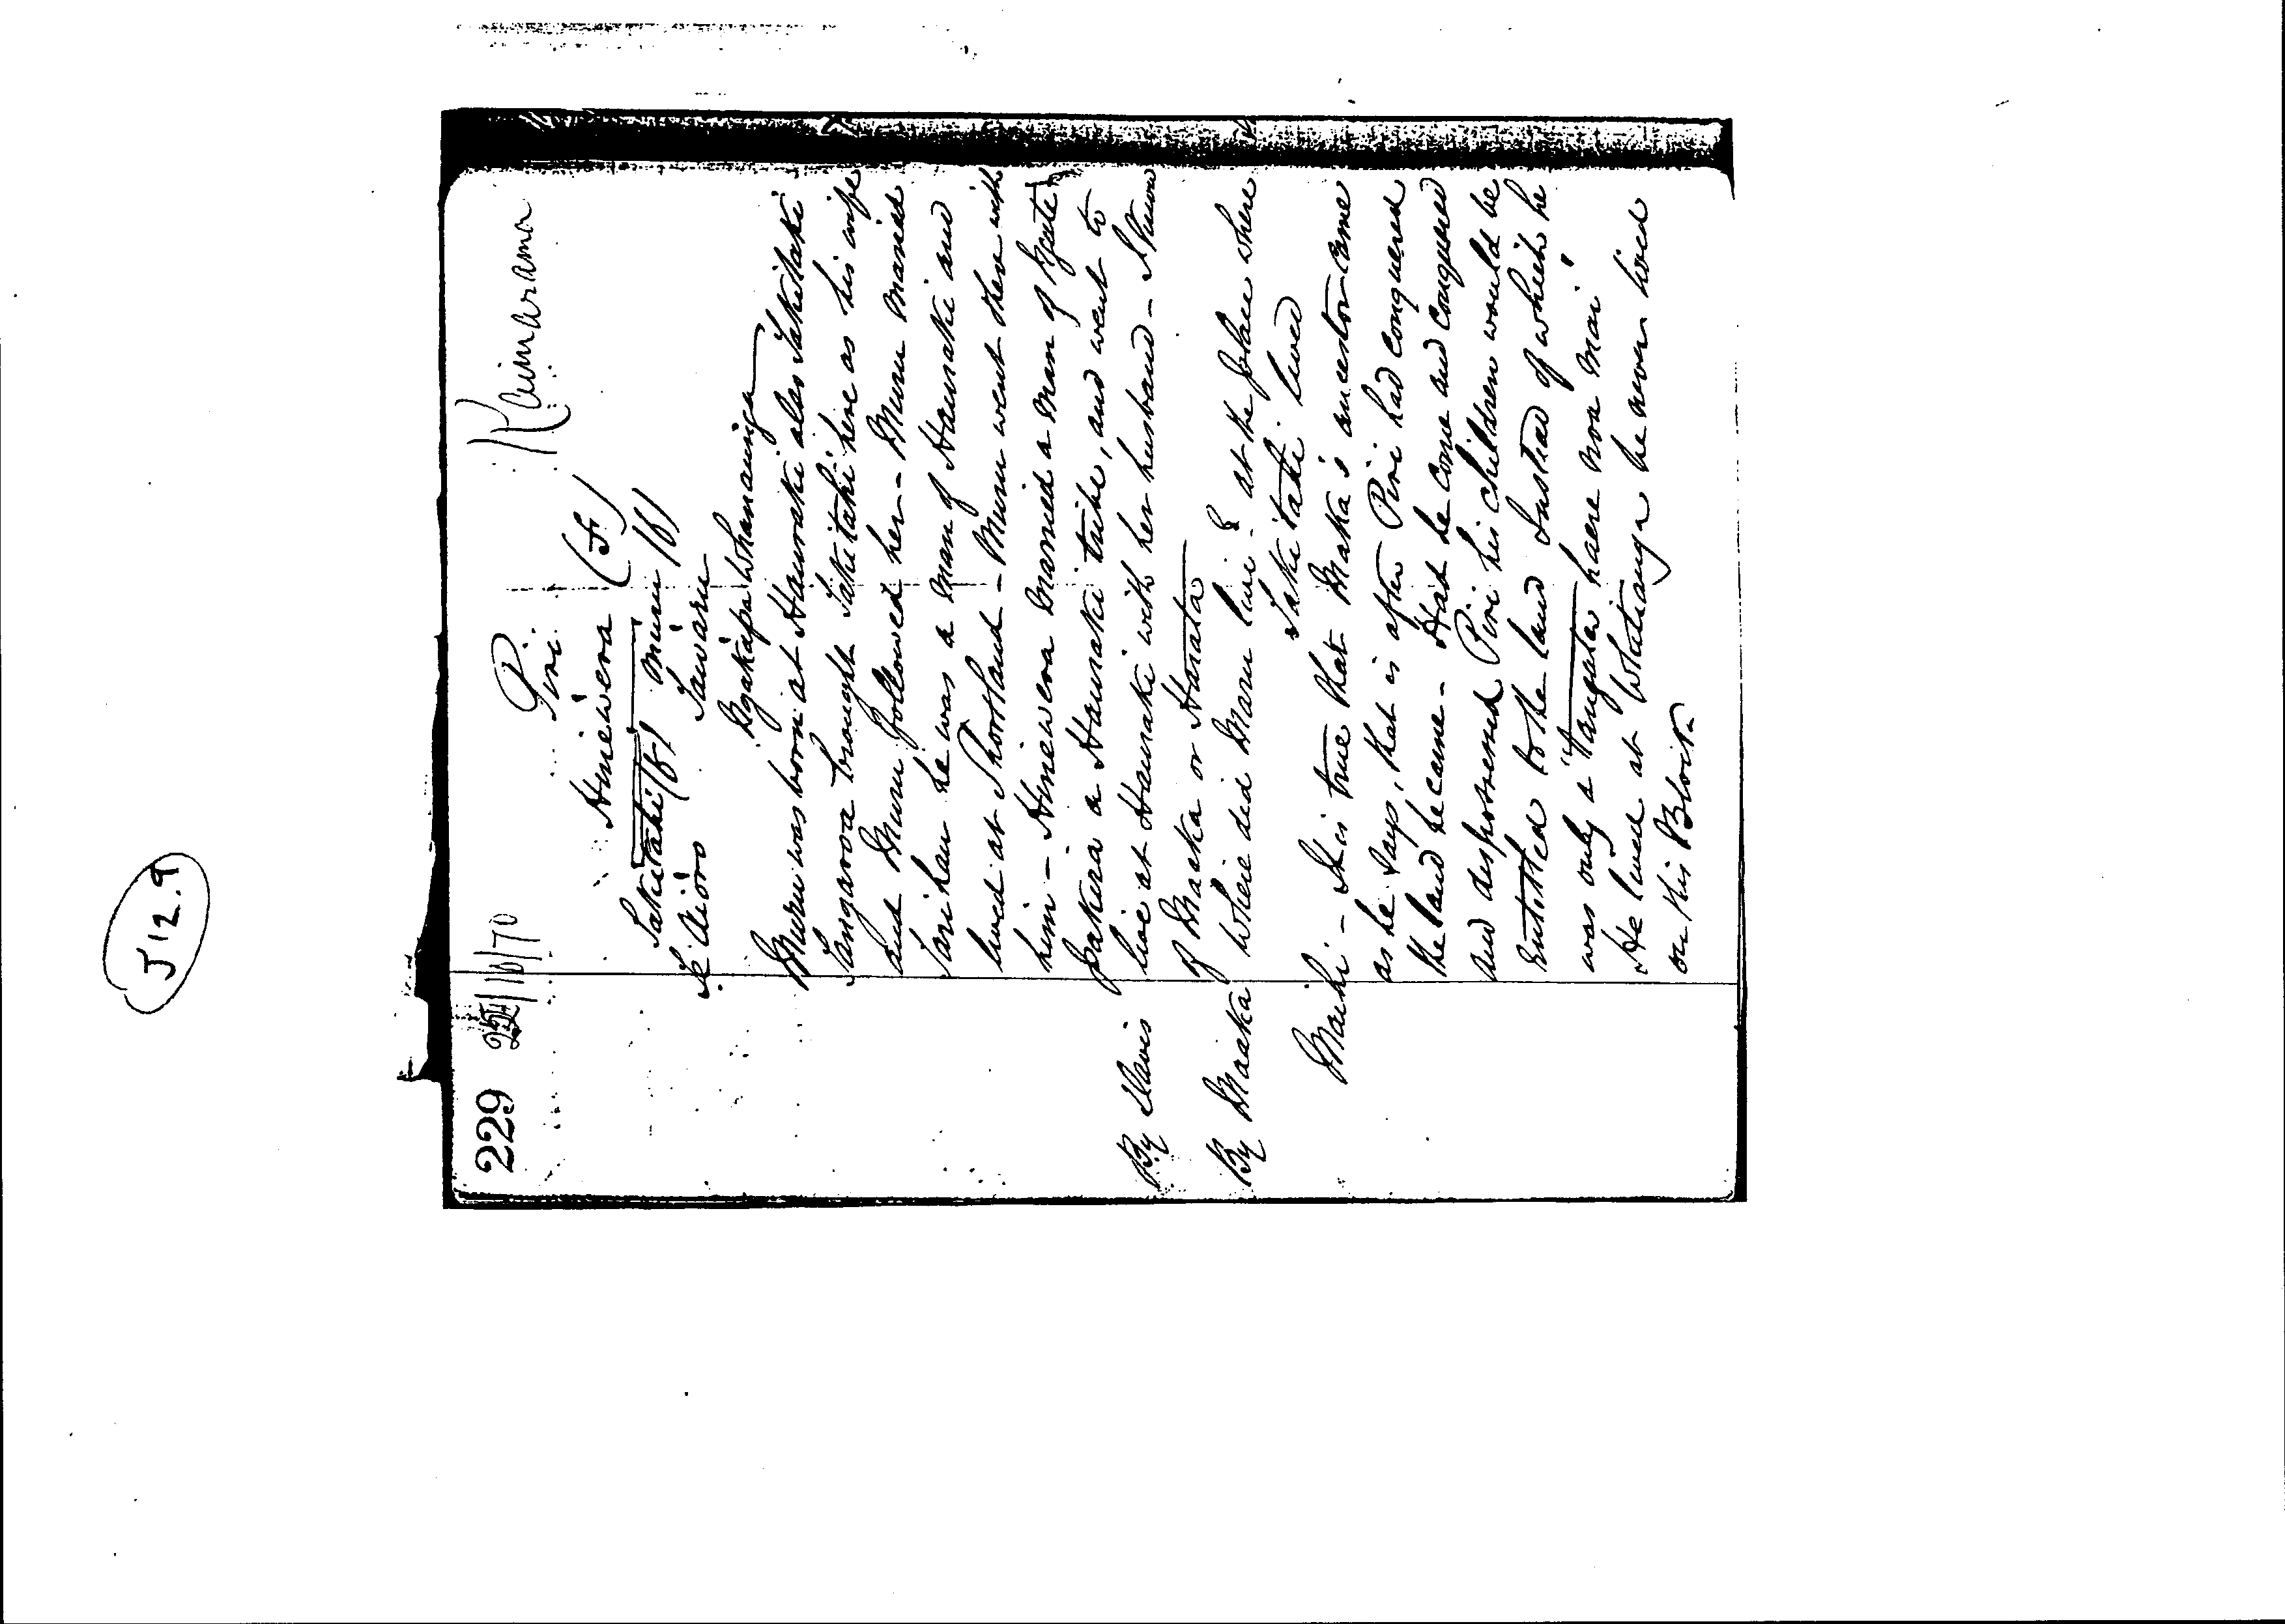 J12.9
229 25/10/70 Kaimarama
Piri
Hinewera (f)
Takitaki (f) Muru (f)
Te Aioro Tawaru
Ngakapa Whanaunga
Muru was born at Hauraki also Takitaki
Tangaroa brought Takitaki here as his wife
and Muru followed her - Muru married
he was a man of Hauraki and
lived at Shortland - Muru went there with
him - Hinewera married a man of Ngati
pakira a Hauraki tribe, and went to
By Davis live at Hauraki with her husband - I know
of Maaka or Harata
By Maaka Where did Maru live? at the place where
Takitaki lived
Maihi - It is true that Maaka's ancestor came
as he says, that is after Piri had conquered
the land he came - Had he come and conquered
and dispossessed Piri his children would be
entitled to the land Instead of which he
was only a "Tangata haere noa mai"
He lived at Whitianga he never lived
on this Block -